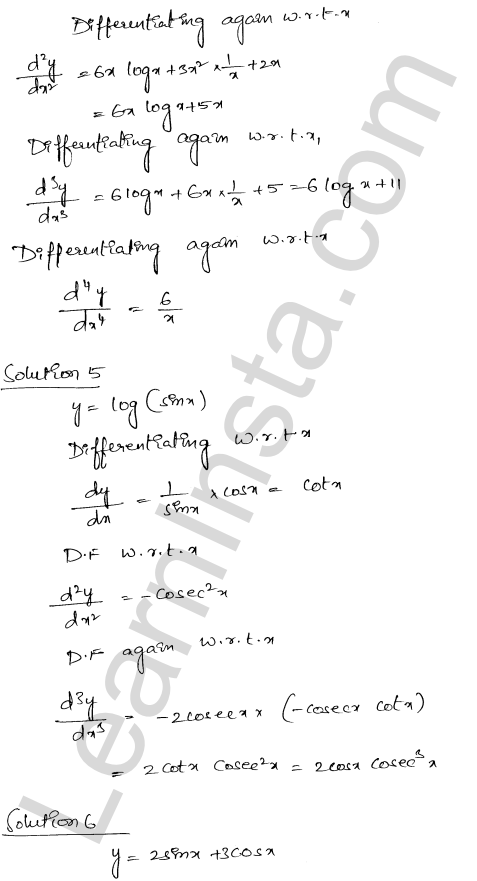 Differentiating again w.r.t.x
d²y/dx² = 6x logx + 3x² × 1/x + 2x
= 6x logx + 5x
Differentiating again w.r.t.x,
d³y/dx³ = 6 logx + 6x × 1/x + 5 = 6 log x + 11
Differentiating again w.r.t.x
d⁴y/dx⁴ = 6/x
Solution 5
y = log (sinx)
Differentiating w.r.t x
dy/dx = 1/sinx × cosx = cotx
D.F w.r.t.x
d²y/dx² = -cosec²x
D.F again w.r.t.x
d³y/dx³ = -2cosecx × (-cosecx cotx)
= 2cotx cosec²x = 2cosx cosec³x
Solution 6
y = 2sinx + 3cosx
LearnInsta.com